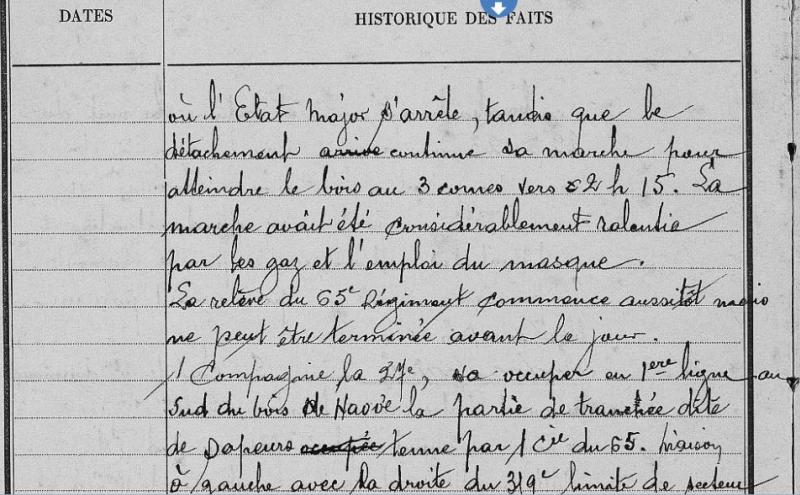 DATES
HISTORIQUE DES FAITS
où l'Etat Major s'arrête, tandis que le
détachement arrive continue sa marche pour
atteindre le bois au 3 cornes vers 2 h 15. La
marche avait été considérablement ralentie
par les gaz et l'emploi du masque.
La relève du 65e Régiment commence aussitôt mais
ne peut être terminée avant le jour.
1 Compagnie la 27e, va occuper en 1ere ligne au
Sud du bois de Haove la partie de tranchée dite
de Sapeurs occupée tenue par 1 Cie du 65. Liaison
à gauche avec la droite du 319e limite de secteur